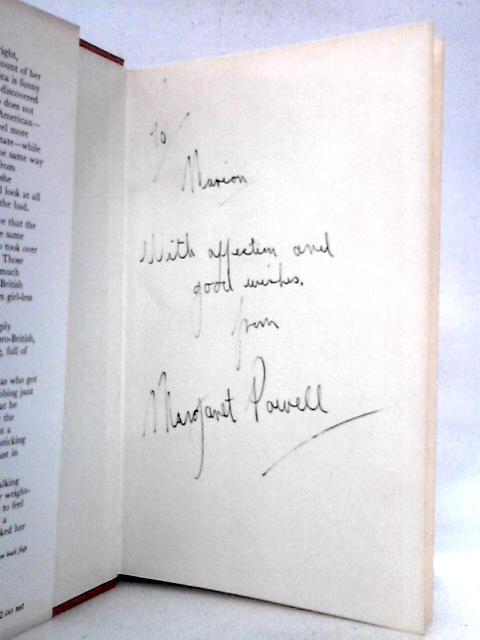 ight,
count of her
ica is funny
discovered
does not
American—
eel more
tate—while
ne same way
from
she
look at all
the bad.
ve that the
e same
o took over
Those
much
British
s girl-less
ply
pro-British,
g, full of
as who got
bing jazz
at he
the
t a
sticking
ust in
alking
weight-
to feel
a
ked her
on back flap
2.00 net
To
Marion
With affection and
good wishes.
from
Margaret Powell